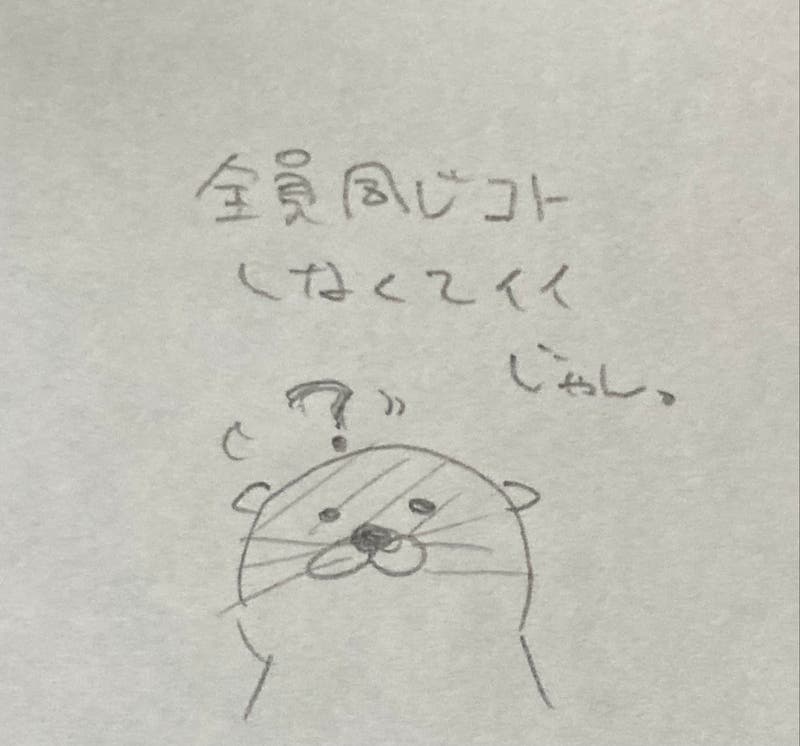 全員同じコト
しなくてイイ
じゃん。
?